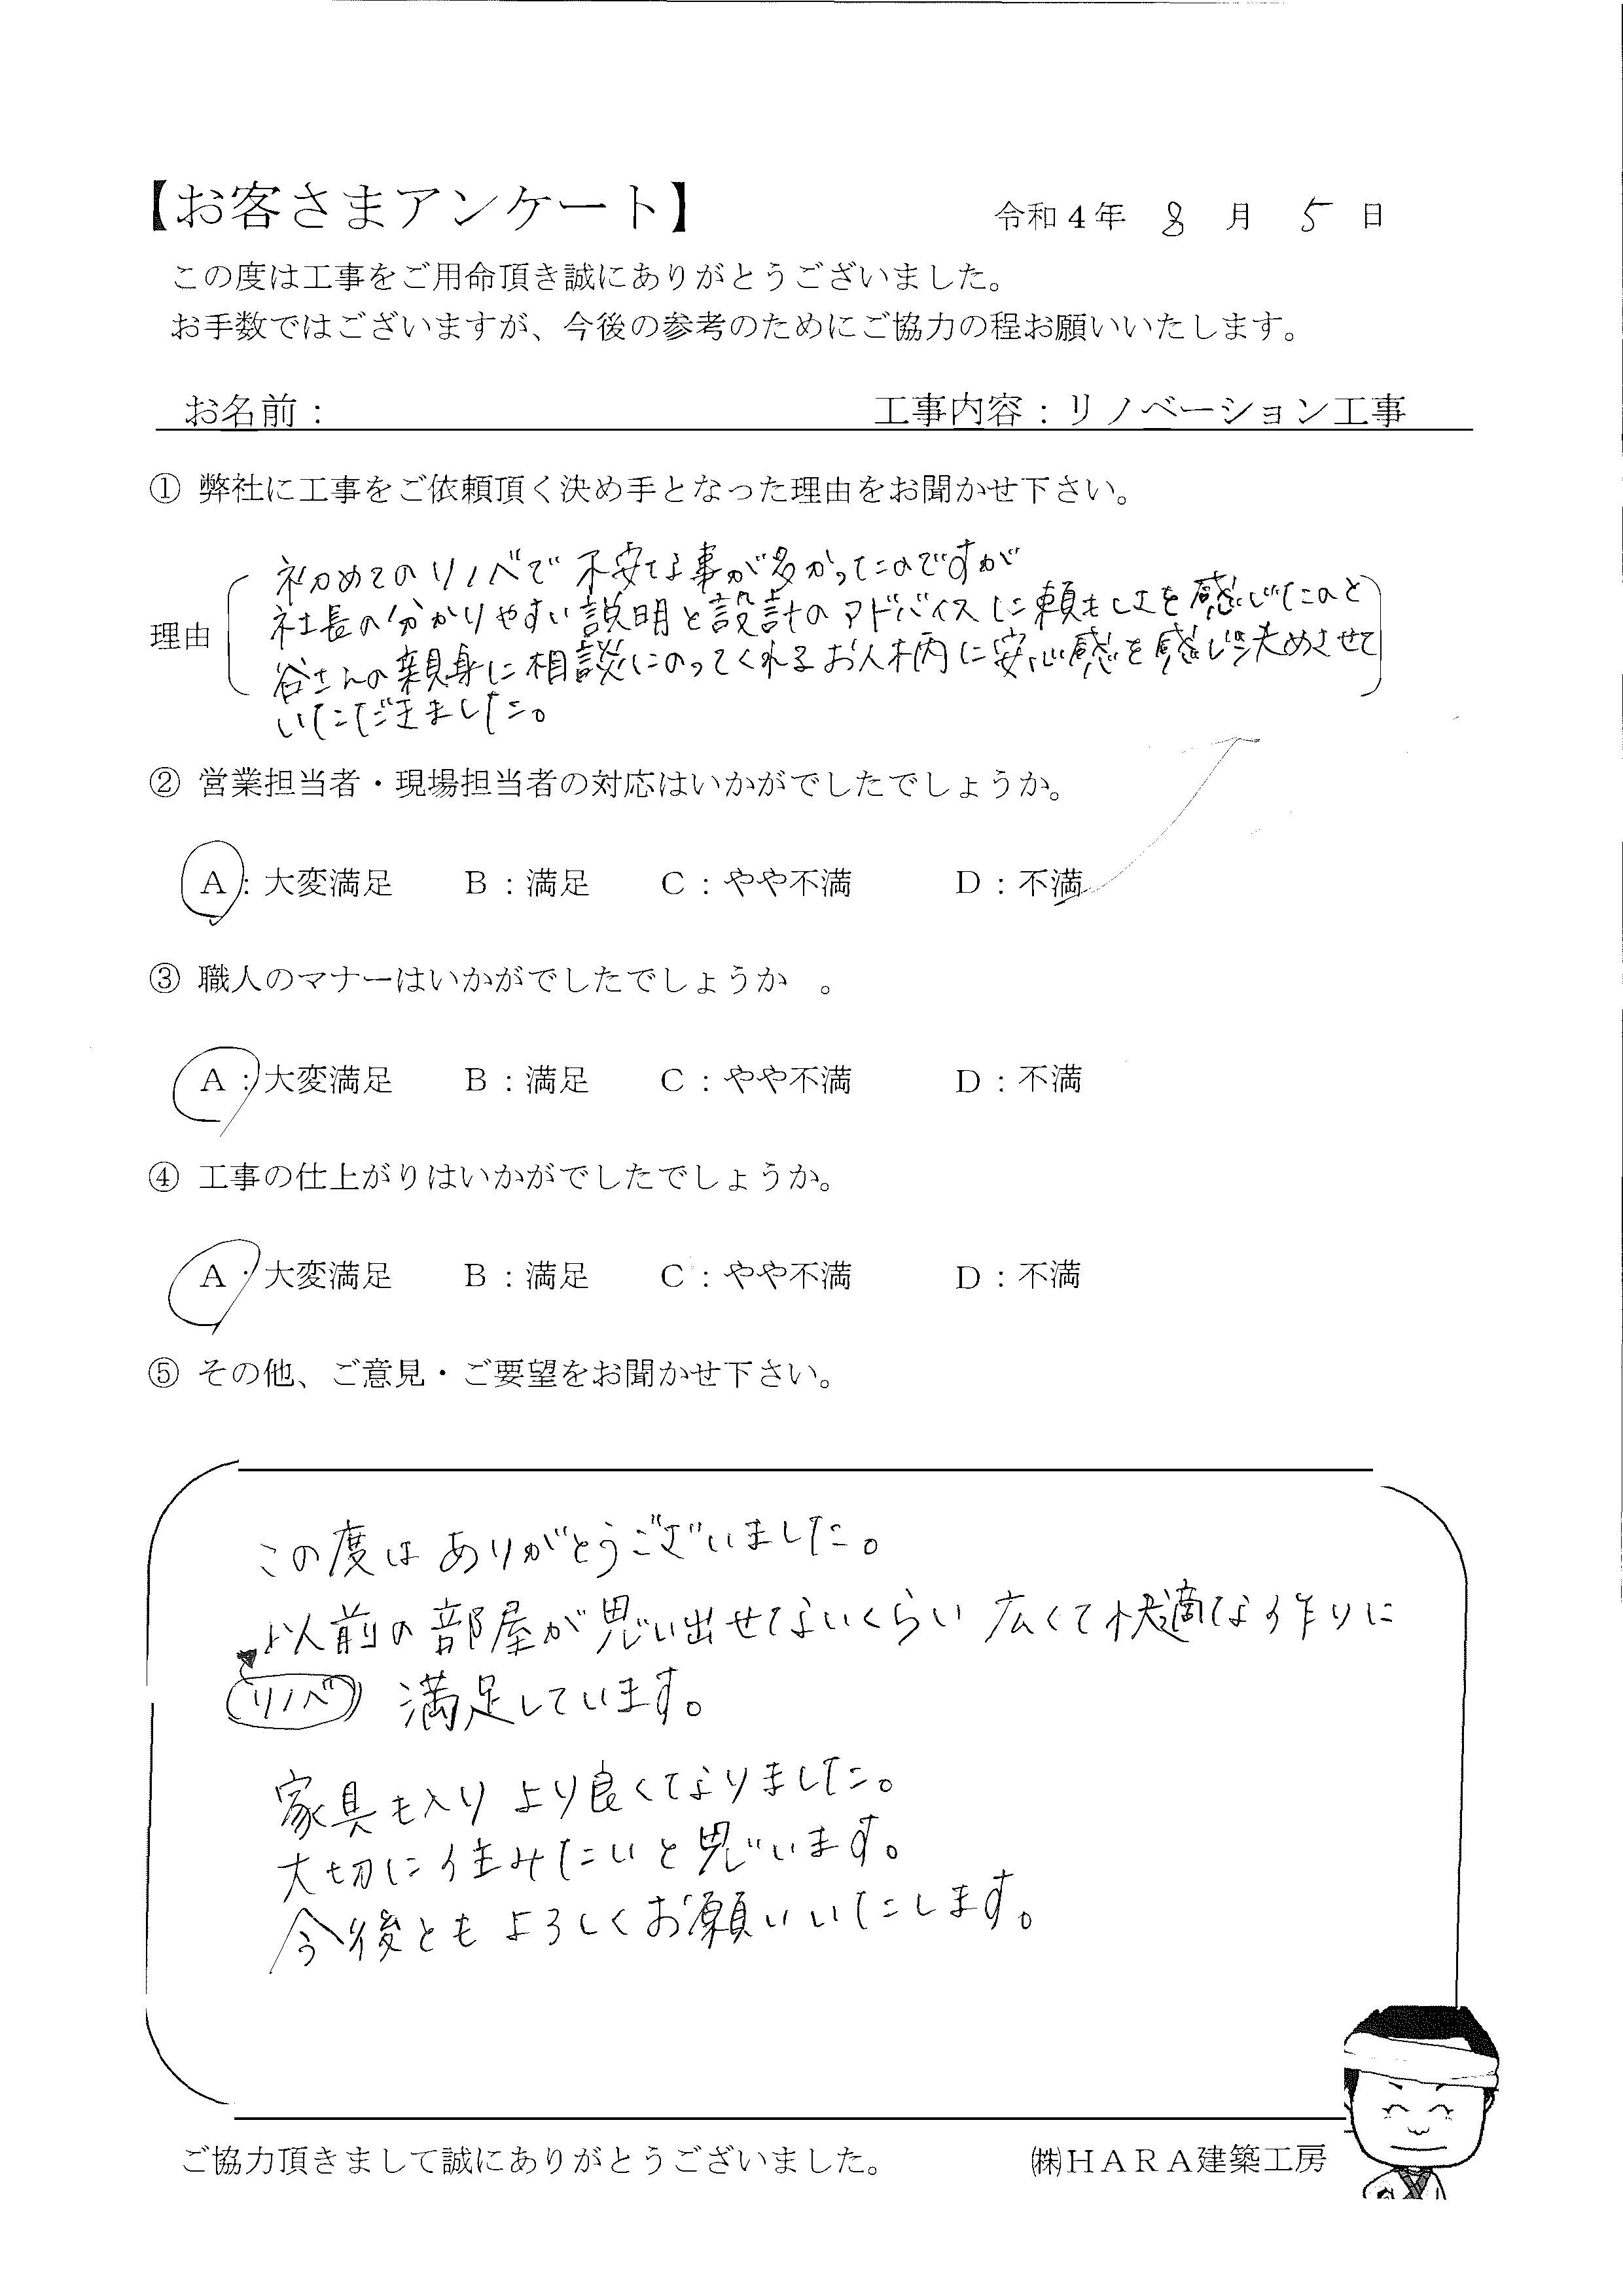 【お客さまアンケート】
令和4年 8月 5日
この度は工事をご用命頂き誠にありがとうございました。
お手数ではございますが、今後の参考のためにご協力の程お願いいたします。
お名前： 工事内容：リノベーション工事
① 弊社に工事をご依頼頂く決め手となった理由をお聞かせ下さい。
理由
初めてのリノベで不安な事が多かったのですが
社長の分かりやすい説明と設計のアドバイスに頼もしさを感じたのと
谷さんの親身に相談にのってくれるお人柄に安心感を感じ決めさせて
いただきました。
② 営業担当者・現場担当者の対応はいかがでしたでしょうか。
A：大変満足 B：満足 C：やや不満 D：不満
③ 職人のマナーはいかがでしたでしょうか 。
A：大変満足 B：満足 C：やや不満 D：不満
④ 工事の仕上がりはいかがでしたでしょうか。
A：大変満足 B：満足 C：やや不満 D：不満
⑤ その他、ご意見・ご要望をお聞かせ下さい。
この度はありがとうございました。
以前の部屋が思い出せないくらい広くて快適な作りに
リノベ 満足しています。
家具も入りより良くなりました。
大切に住みたいと思います。
今後ともよろしくお願いいたします。
ご協力頂きまして誠にありがとうございました。
㈱HARA建築工房